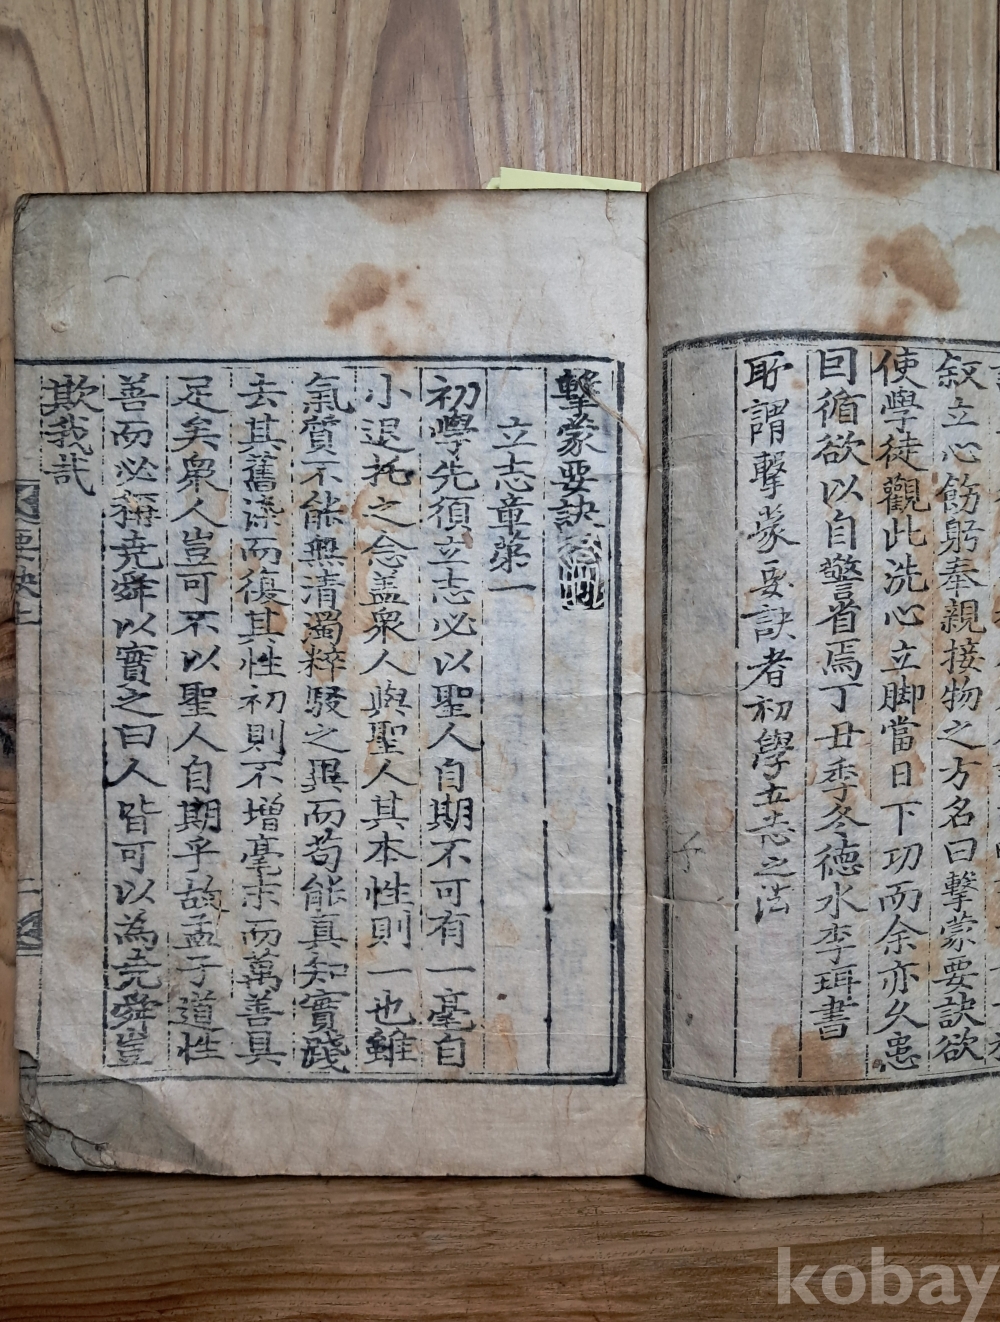 叙立心飭躬奉親接物之方名曰擊蒙要訣欲
使學徒觀此洗心立脚當日下功而余亦久患
因循欲以自警省焉丁丑季冬德水李珥書
所謂擊蒙要訣者初學立志之法
擊蒙要訣
立志章第一
初學先須立志必以聖人自期不可有一毫自
小退托之念盖衆人與聖人其本性則一也雖
氣質不能無清濁粹駁之異而苟能真知實踐
去其舊染而復其性初則不增毫末而萬善具
足矣衆人豈可不以聖人自期乎故孟子道性
善而必稱堯舜以實之曰人皆可以為堯舜豈
欺我㢤
子
kobay